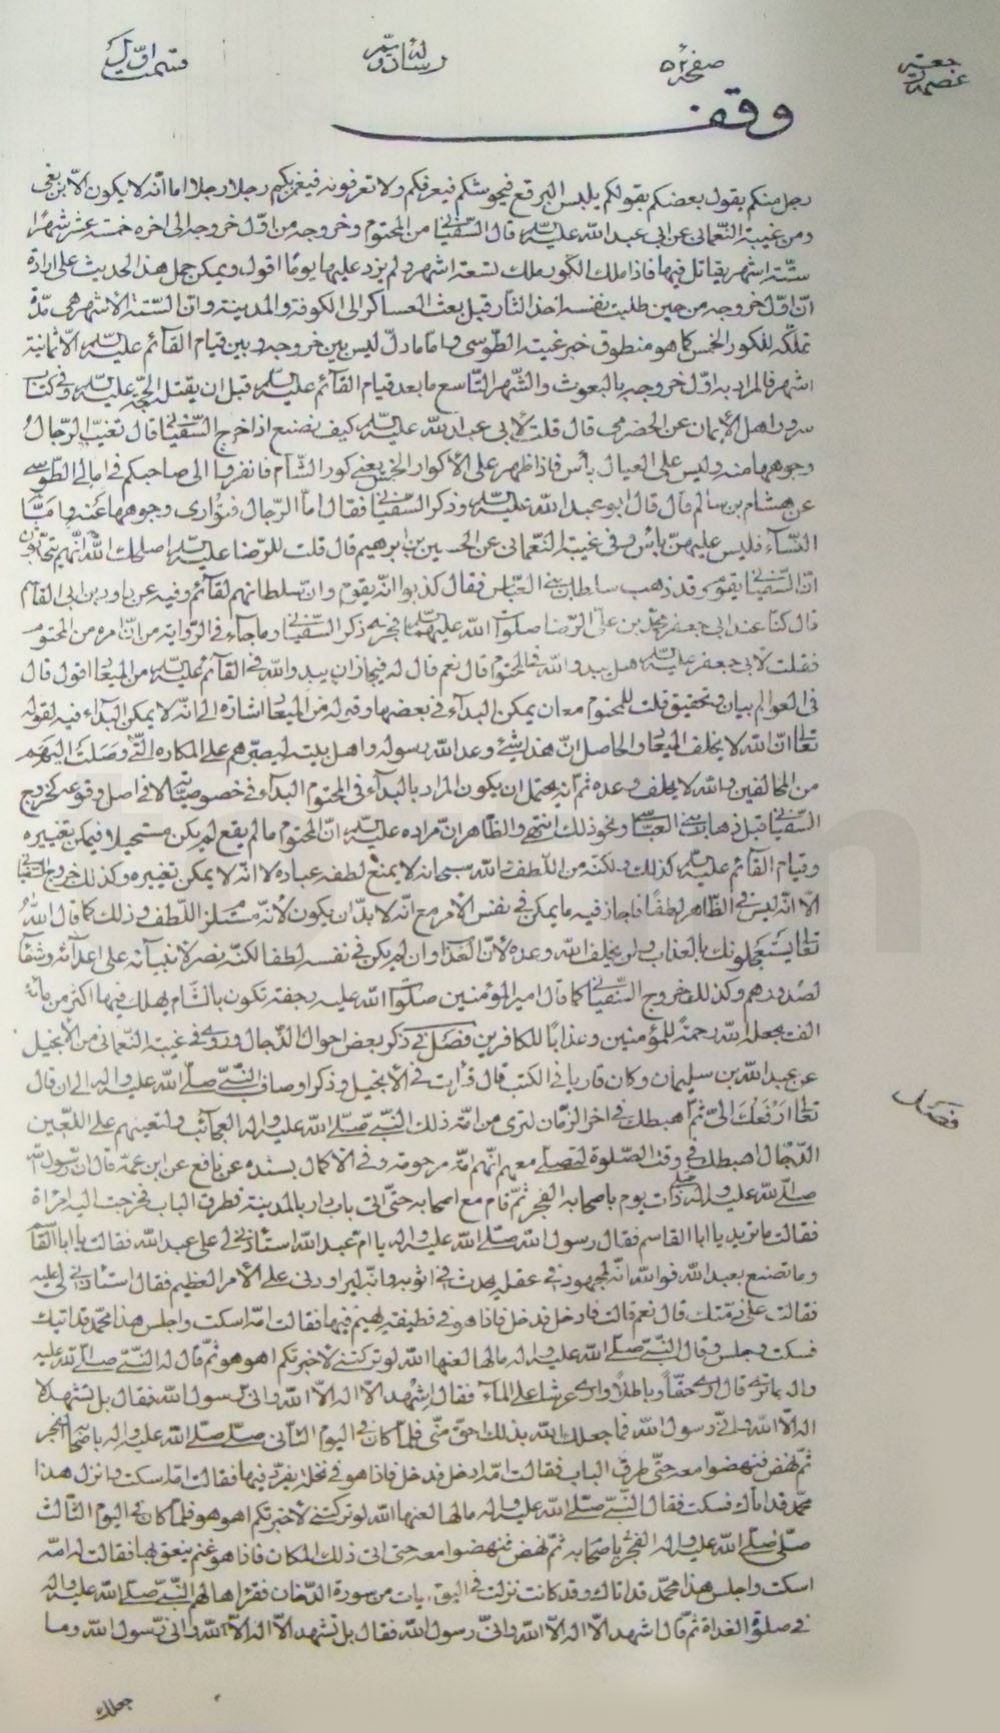 صفحه
وقف
رجل منكم يقول بعضكم بقولكم يلبس البرقع فيحوشكم فيعرفكم ولا تعرفونه فيغمز بكم رجلا رجلا اما انه لا يكون الا ابن بغى
ومن غيبة النعمانى عن ابى عبد الله عليه السلام قال السفيانى من المحتوم وخروجه من اول خروجه الى اخره خمسة عشر شهرا
ستة اشهر يقاتل فيها فاذا ملك الكور ملك تسعة اشهر ولم يزد عليها يوما اقول ويمكن حمل هذا الحديث على ارادة
ان اول خروجه من حين طلبت نفسه اخذ الثار قبل بعث العساكر الى الكوفة والمدينة وان الستة الاشهر هى مدة
تملكه للكور الخمس كما هو منطوق خبر غيبة الطوسى واما ما دل ليس بين خروجه وبين قيام القائم عليه السلم الا ثمانية
اشهر فالمراد به اول خروجه بالبعوث والشهر التاسع ما بعد قيام القائم عليه السلم قبل ان يقتله الحجة عليه السلم وفى كتاب
سرور اهل الايمان عن الحضرمى قال قلت لابى عبد الله عليه السلم كيف نصنع اذا خرج السفيانى قال تغيب الرجال
وجوهها منه وليس على العيال باس فاذا ظهر على الاكوار الخمس يعنى كور الشام فانفروا الى صاحبكم فى امالى الطوسى
عن هشام بن سالم قال قال ابو عبد الله عليه السلم وذكر السفيانى فقال اما الرجال فتوارى وجوهها عنه واما
النساء فليس عليهن باس وفى غيبة النعمانى عن الحسين بن ابرهيم قال قلت للرضا عليه السلم اصلحك الله انهم يتحدثون
ان السفيانى يقوم وقد ذهب سلطان بنى العباس فقال كذبوا انه يقوم وان سلطانهم لقائم وفيه عن داود بن ابى القاسم
قال كنا عند ابى جعفر محمد بن على الرضا صلوات الله عليهما فجرى ذكر السفيانى وما جاء فى الرواية من ان امره من المحتوم
فقلت لابى جعفر عليه السلم هل يبدو لله فى المحتوم قال نعم قال له فيجاز ان يبدو لله فى القائم عليه السلم من الميعاد اقول قال
فى العوالم بيان وتحقيق قلت للمحتوم معان يمكن البداء فى بعضها وقوله من الميعاد اشارة الى انه لا يمكن البداء فيه لقوله
تعالى ان الله لا يخلف الميعاد والحاصل ان هذا شىء وعد الله رسوله واهل بيته لصبرهم على المكاره التى وصلت اليهم
من المخالفين والله لا يخلف وعده ثم انه يحتمل ان يكون المراد بالبداء فى المحتوم البداء فى خصوصياته لا فى اصل وقوعه كخروج
السفيانى قبل ذهاب بنى العباس ونحو ذلك انتهى والظاهر ان مراده عليه السلم ان المحتوم ما لم يقع لم يكن مستحيلا فيمكن تغييره
وقيام القائم عليه السلم كذلك ولكنه من اللطف والله سبحانه لا يمنع لطفه عباده لا انه لا يمكن تغييره وكذلك خروج السفيانى
الا انه ليس فى الظاهر لطفا فاجاز فيه ما يمكن فى نفس الامر مع انه لا بد ان يكون لانه مستلزم اللطف وذلك كما قال الله
تعالى يستعجلونك بالعذاب ولن يخلف الله وعده لان العذاب وان لم يكن فى نفسه لطفا لكنه نصر لانبيائه على اعدائه وشفاء
لصدورهم وكذلك خروج السفيانى كما قال امير المؤمنين صلوات الله عليه رجفة تكون بالشام يهلك فيها اكثر من مائة
الف يجعله الله رحمة للمؤمنين وعذابا للكافرين فصل فى ذكر بعض احوال الدجال وروى فى غيبة النعمانى من الانجيل
عن عبد الله بن سليمان وكان قاريا فى الكتب قال قرات فى الانجيل وذكر اوصاف النبى صلى الله عليه واله الى ان قال
تعالى ارفعك الى ثم اهبطك فى اخر الزمان لترى من امة ذلك النبى صلى الله عليه واله العجائب ولتعينهم على اللعين
الدجال اهبطك فى وقت الصلوة لتصلى معهم انهم امة مرحومة وفى الاكمال بسنده عن نافع عن ابن عمر قال ان رسول الله
صلى الله عليه واله صلى ذات يوم باصحابه الفجر ثم قام مع اصحابه حتى اتى باب دار بالمدينة فطرق الباب فخرجت اليه امراة
فقالت ما تريد يا ابا القاسم فقال رسول الله صلى الله عليه واله يا ام عبد الله استاذنى لى على عبد الله فقالت يا ابا القاسم
وما تصنع بعبد الله فوالله انه لمجهود فى عقله يحدث فى اثوبه وانه ليراودنى على الامر العظيم فقال استاذنى لى عليه
فقالت على ذمتك قال نعم قالت فادخل فدخل فاذا هو فى قطيفة يهينم فيها فقالت امه اسكت واجلس هذا محمد قد اتاك
فسكت وجلس وقال النبى صلى الله عليه واله ما لها لعنها الله لو تركتنى لاخبرتكم اهو هو ثم قال له النبى صلى الله عليه
واله ما ترى قال ارى حقا وباطلا وارى عرشا على الماء فقال اشهد الا اله الا الله وانى رسول الله فقال بل تشهد لا
اله الا الله وانى رسول الله فما جعلك الله بذلك احق منى فلما كان فى اليوم الثانى صلى صلى الله عليه واله باصحابه الفجر
ثم نهض فنهضوا معه حتى طرق الباب فقالت امه ادخل فدخل فاذا هو فى نخلة يغرد فيها فقالت امه اسكت وانزل هذا
محمد قد اتاك فسكت فقال النبى صلى الله عليه واله ما لها لعنها الله لو تركتنى لاخبرتكم اهو هو فلما كان فى اليوم الثالث
صلى صلى الله عليه واله الفجر باصحابه ثم نهض فنهضوا معه حتى اتى ذلك المكان فاذا هو فى غنم ينعق بها فقالت له امه
اسكت واجلس هذا محمد قد اتاك وقد كانت نزلت فى اليوم ايات من سورة الدخان فقراها لهم النبى صلى الله عليه واله
فى صلوة الغداة ثم قال اشهد الا اله الا الله وانى رسول الله فقال بل تشهد الا اله الا الله وانى رسول الله وما
فصل
جعلك